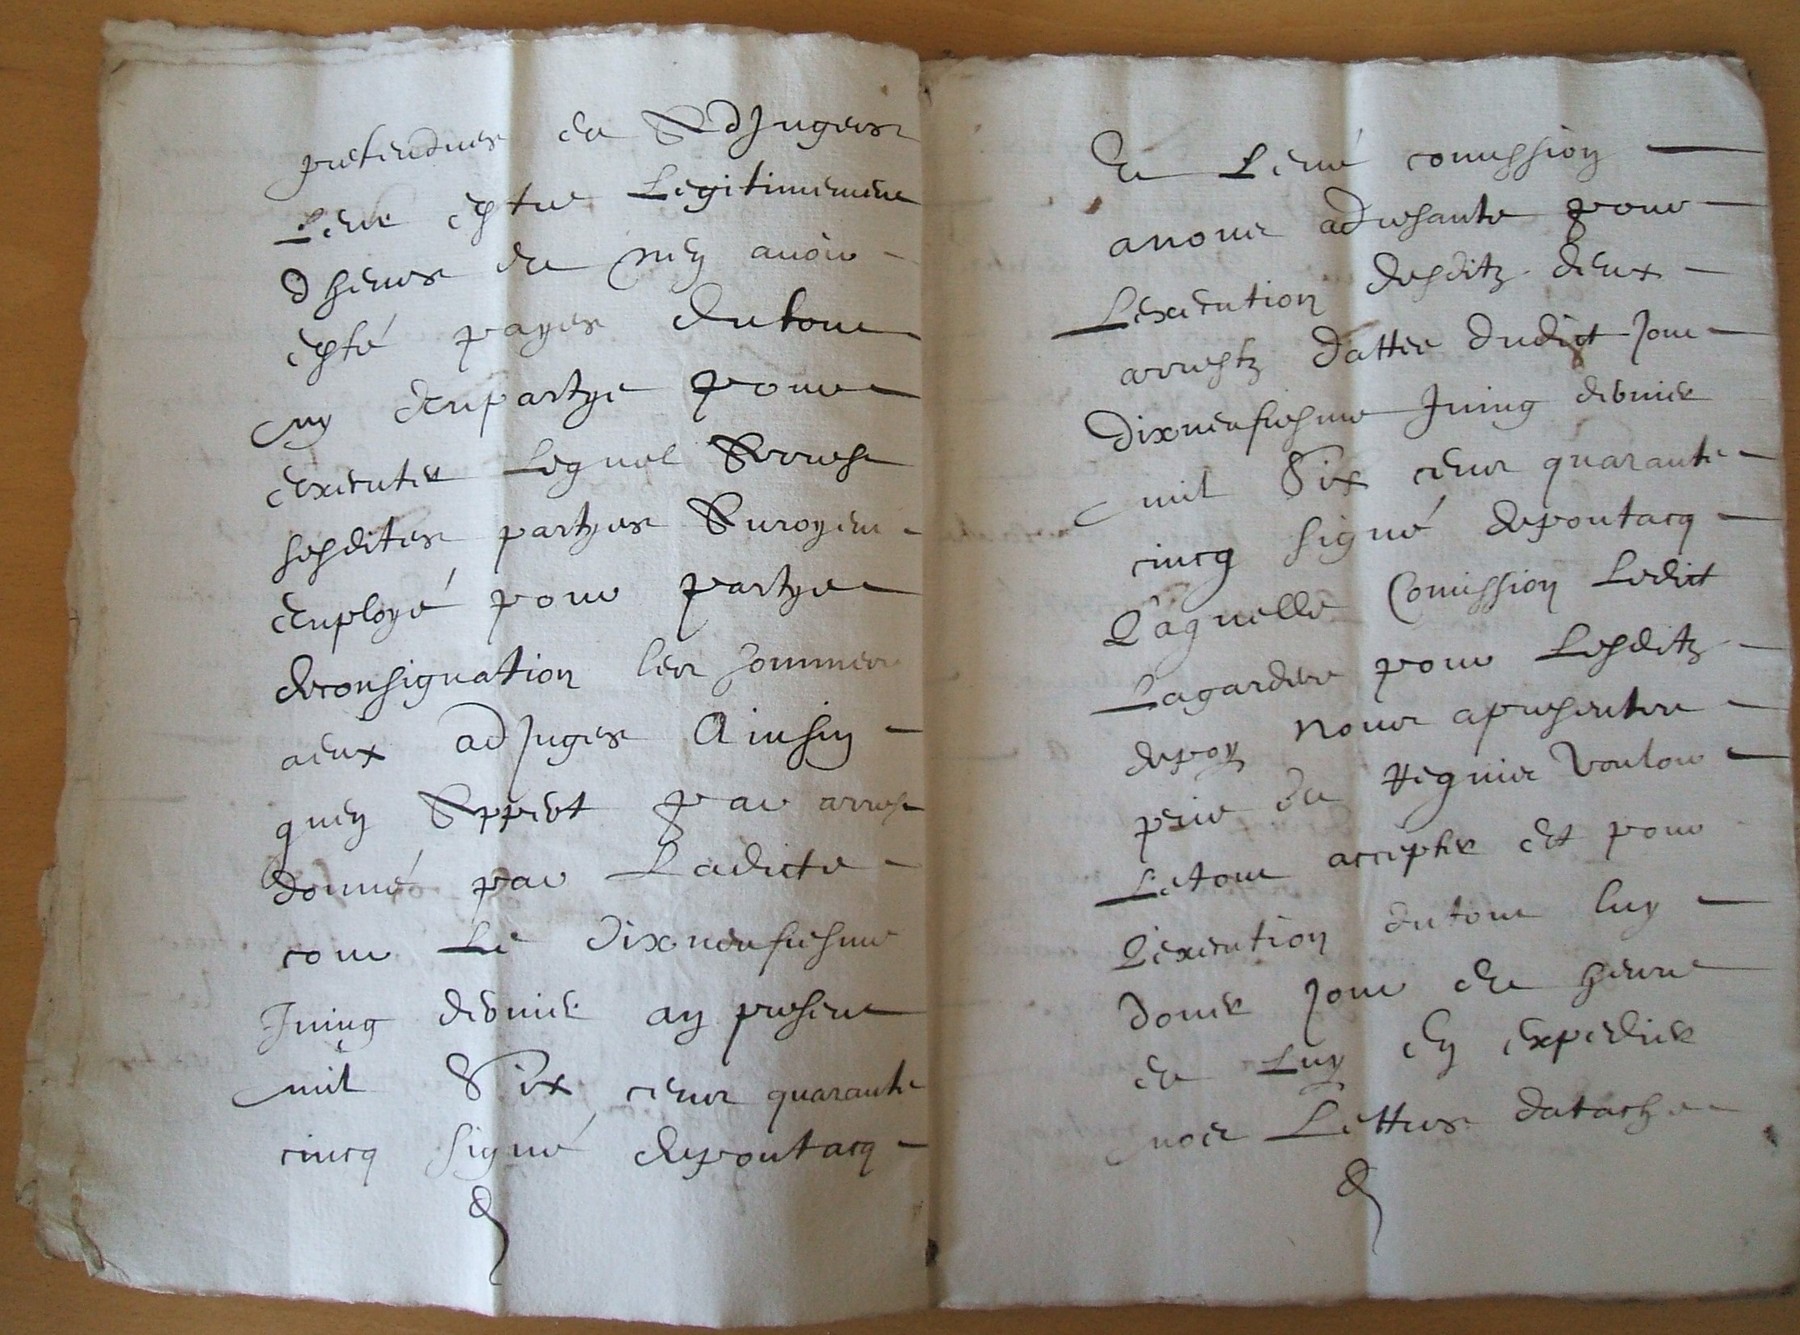 pretendues et Adjugees
Leur estre Legitimement
dheues et ny avoir
esté payes du tout
ny en partye pour
executer Lequel Arrest
lesdites partyes Auroyent
employé pour partye
deconsignation les sommes
a eux adjuges Ainsin
quen Appert par arrest
donné par Ladicte
cour Le dixneufiesme
Juing dernier an present
mil Six cens quarante
cincq signé depontacq
Et Levé comission
a nous adresante pour
Lexecution desditz deux
arrestz dattee dudict jour
dixneufiesme Juing dernier
mil Six cens quarante
cincq signé depontacq
Laquelle Comission Ledict
Lagardere pour Lesditz
depoy nous a presentee
prié et Requier voulloir
Le tout accepter et pour
L'execution du tout luy
doner jour et heure
et Luy en expedier
noz Lettres datache